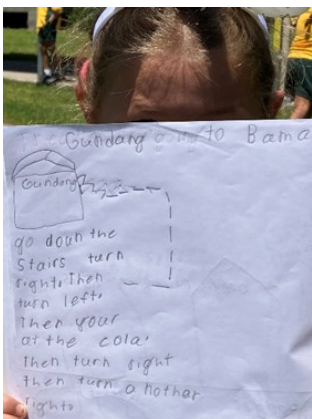 Gundang going to Bama
Gundang
go doun the
stairs turn
right. Then
turn left.
Then your
at the cola.
Then turn right
then turn a nother
right.